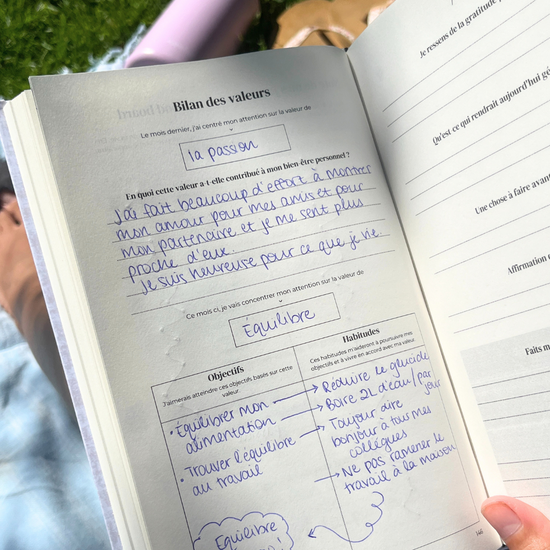 Bilan des valeurs
Le mois dernier, j'ai centré mon attention sur la valeur de
la passion
En quoi cette valeur a-t-elle contribué à mon bien-être personnel ?
J'ai fait beaucoup d'effort à montrer
mon amour pour mes amis et pour
mon partenaire et je me sent plus
proche d'eux.
Je suis heureuse pour ce que je vie.
Ce mois ci, je vais concentrer mon attention sur la valeur de
Équilibre
Objectifs
J'aimerais atteindre ces objectifs basés sur cette
valeur
• Équilibrer mon
alimentation
• Trouver l'équilibre
au travail
Équilibre
Habitudes
Ces habitudes m'aideront à poursuivre mes
objectifs et à vivre en accord avec ma valeur
Réduire le glucide
Boire 2L d'eau/par
jour
Toujour dire
bonjour à tous mes
collègues
Ne pas ramener le
travail à la maison
146
Je ressens de la gratitude
Qu'est ce qui rendrait aujourd'hui
Une chose à faire avant
Affirmation
Faits